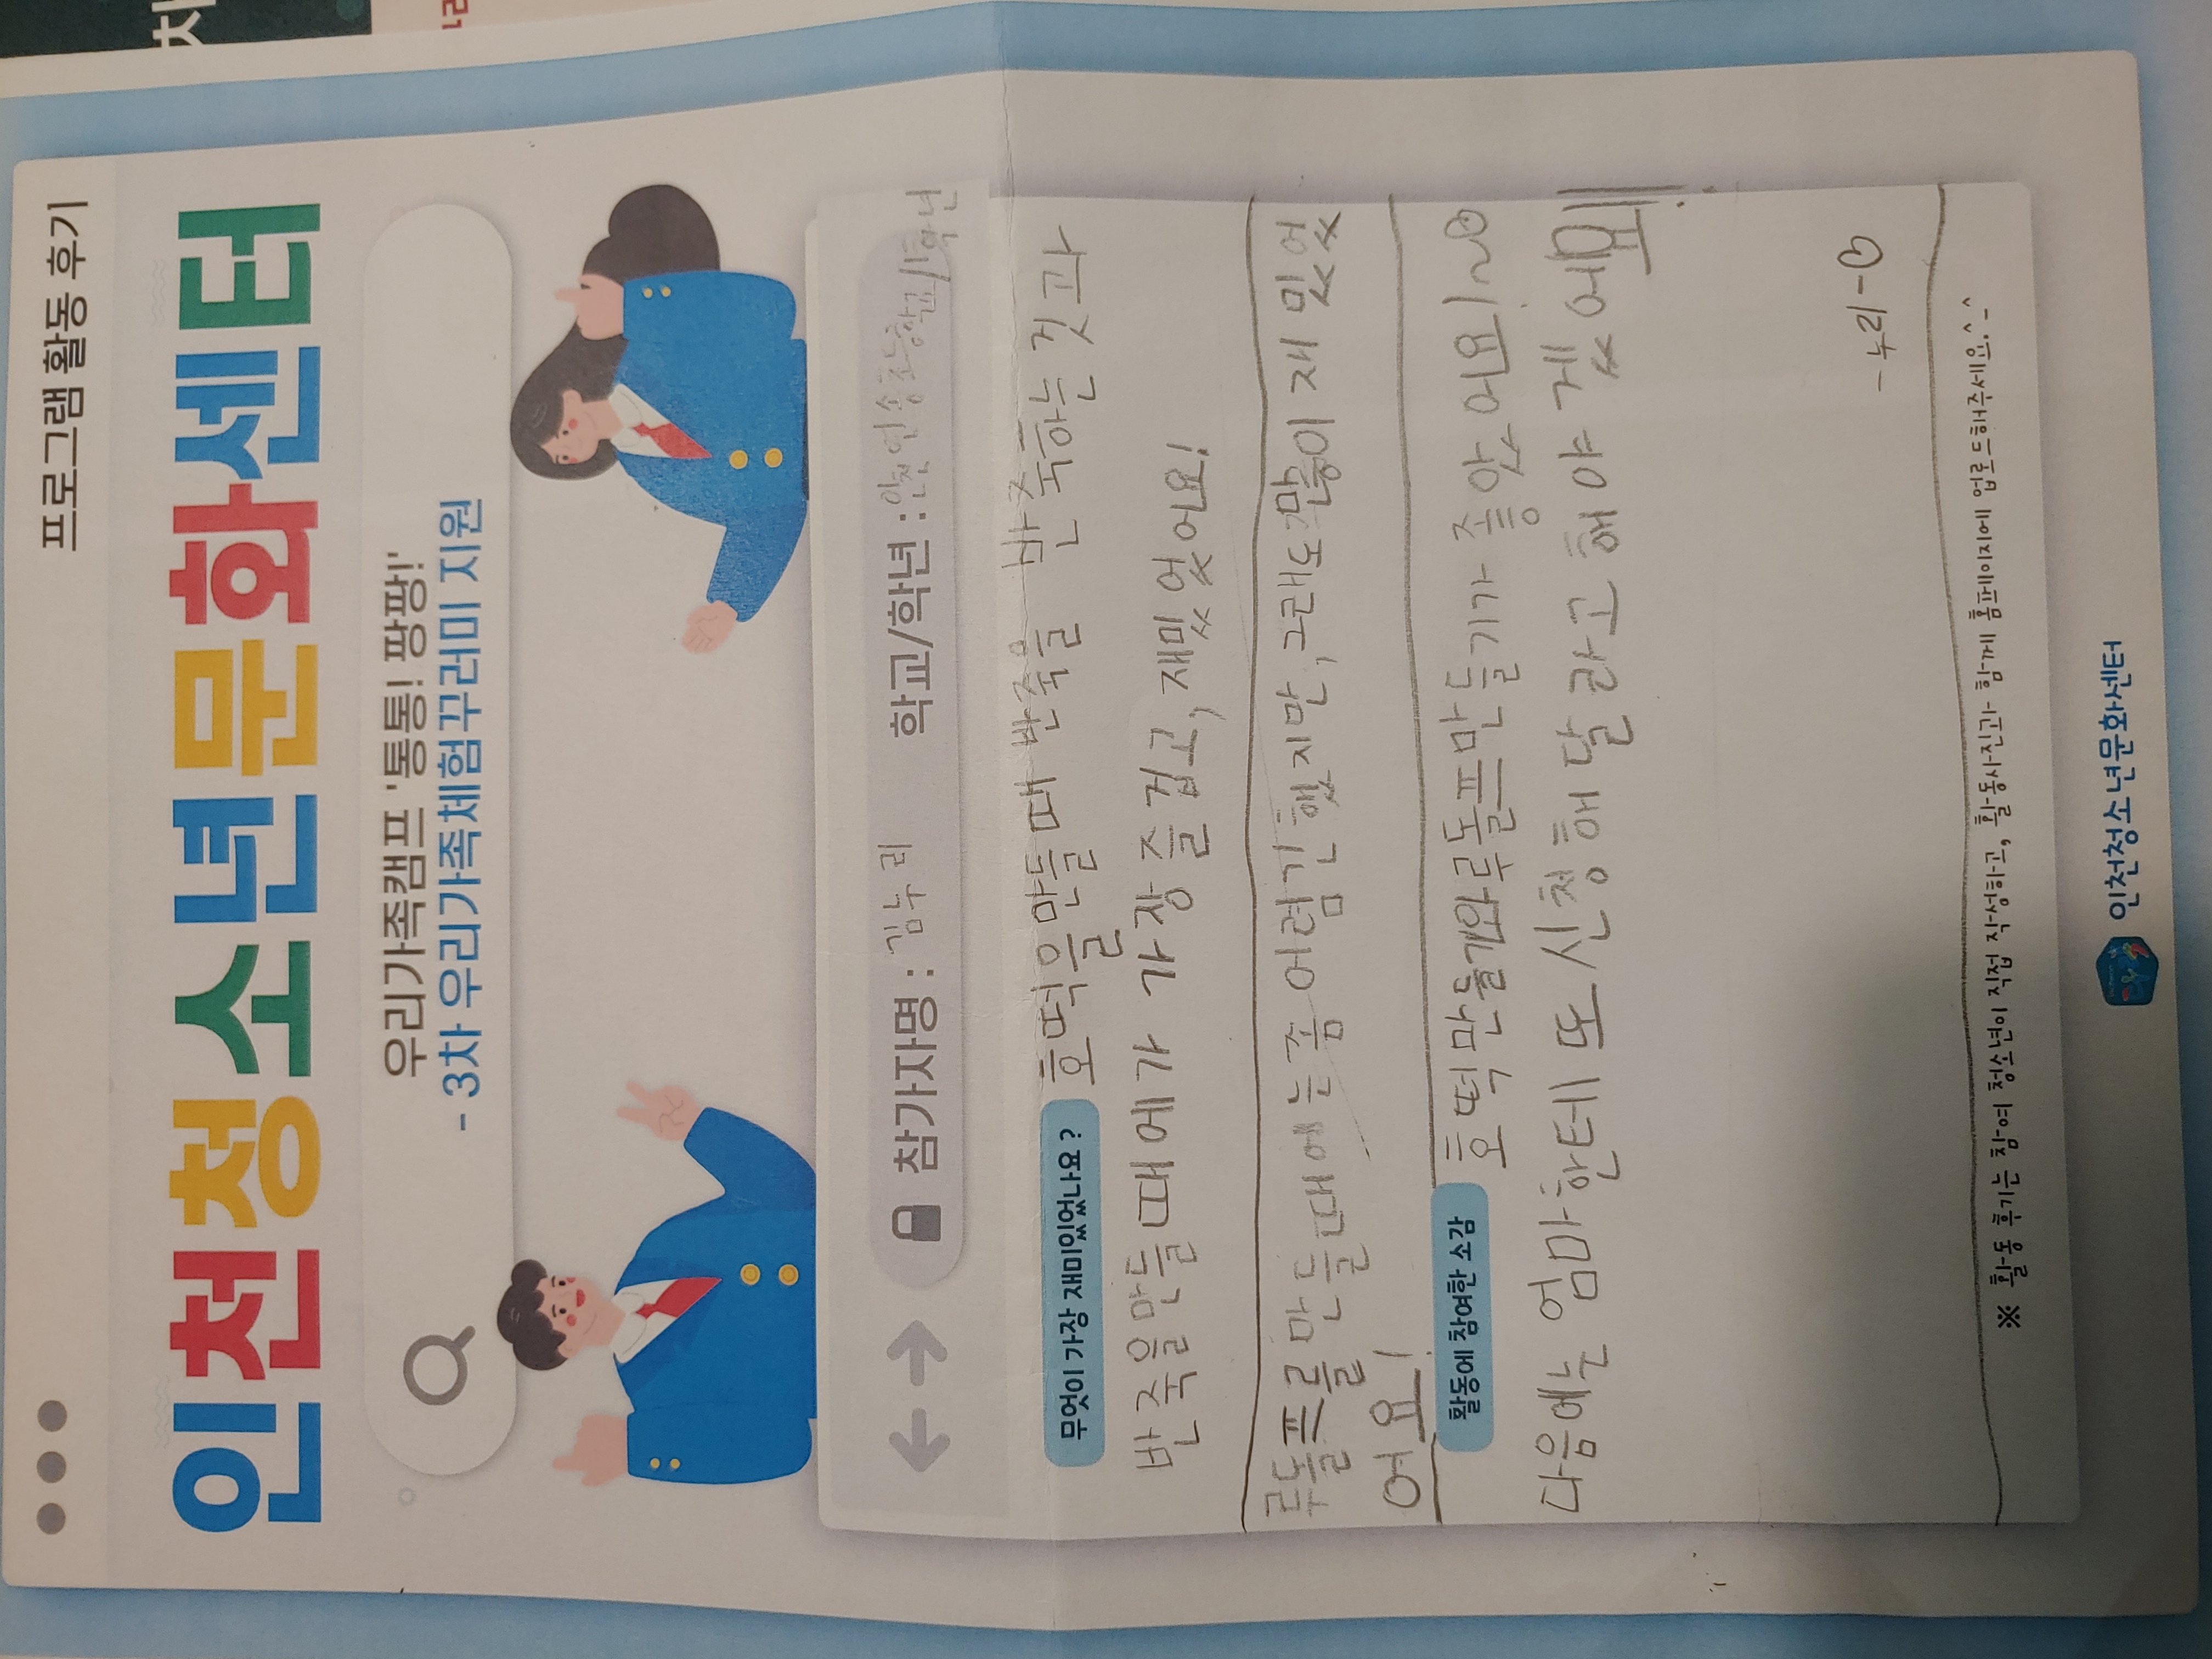 프로그램 활동 후기
인천청소년문화센터
우리가족캠프 '통통! 팡팡!'
- 3차 우리가족체험꾸러미 지원
참가자명 : 김누리 학교/학년 : 인천연송초등학교/1학년
무엇이 가장 재미있었나요? 호떡을만들때 반죽을 반죽하는 것과
반죽을만들때에가 가장 즐겁고, 재밌었어요!
루돌프를만들때에는좀 어렵긴했지만, 그래도많이 재밌었
어요!
활동에 참여한 소감 호떡만들기와루돌프만들기가 좋았어요!~
다음에는 엄마한테 또 신청해달라고 해야겠어요!!!
-누리-
※ 활동 후기는 참여 청소년이 직접 작성하고, 활동사진과 함께 홈페이지에 업로드해주세요.^_^
인천청소년문화센터